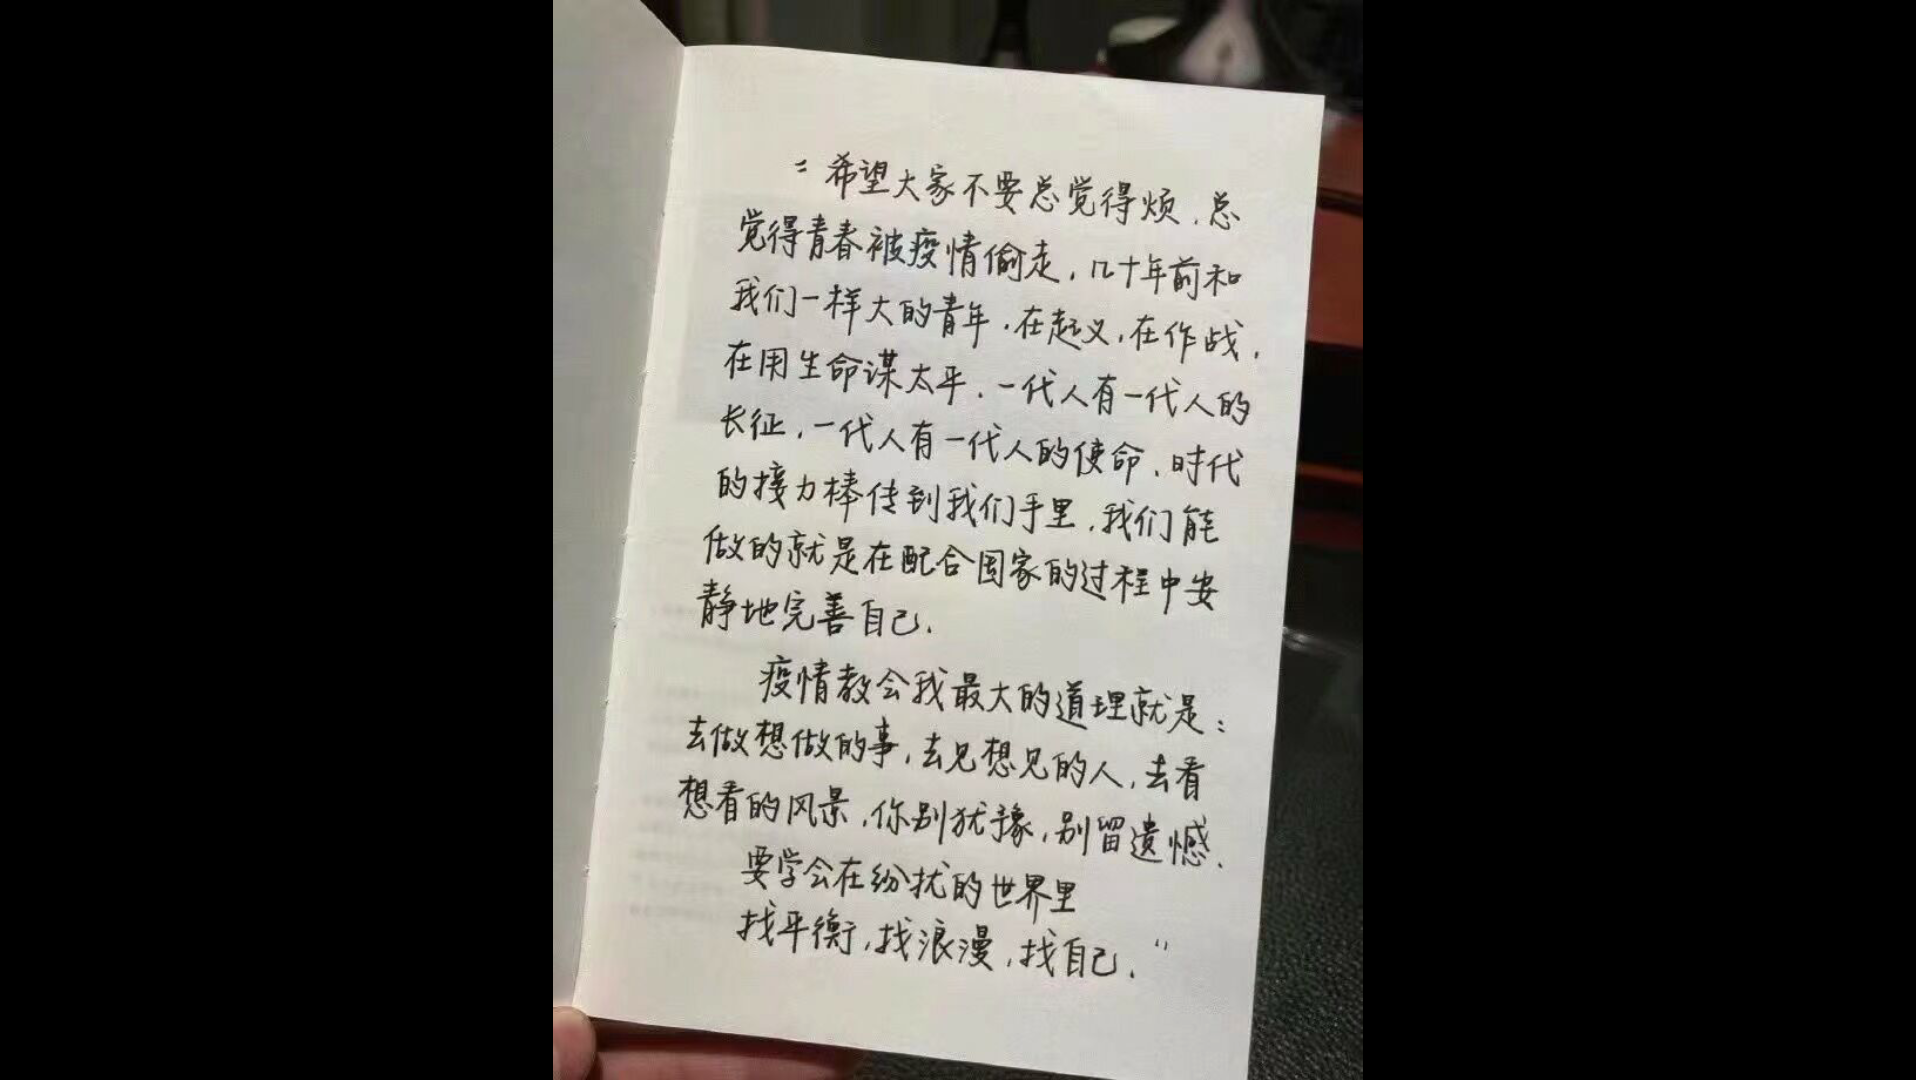 "希望大家不要总觉得烦.总
觉得青春被疫情偷走,几十年前和
我们一样大的青年.在起义,在作战,
在用生命谋太平.一代人有一代人的
长征,一代人有一代人的使命.时代
的接力棒传到我们手里,我们能
做的就是在配合国家的过程中安
静地完善自己.
疫情教会我最大的道理就是:
去做想做的事,去见想见的人,去看
想看的风景,你别犹豫,别留遗憾.
要学会在纷扰的世界里
找平衡,找浪漫,找自己."